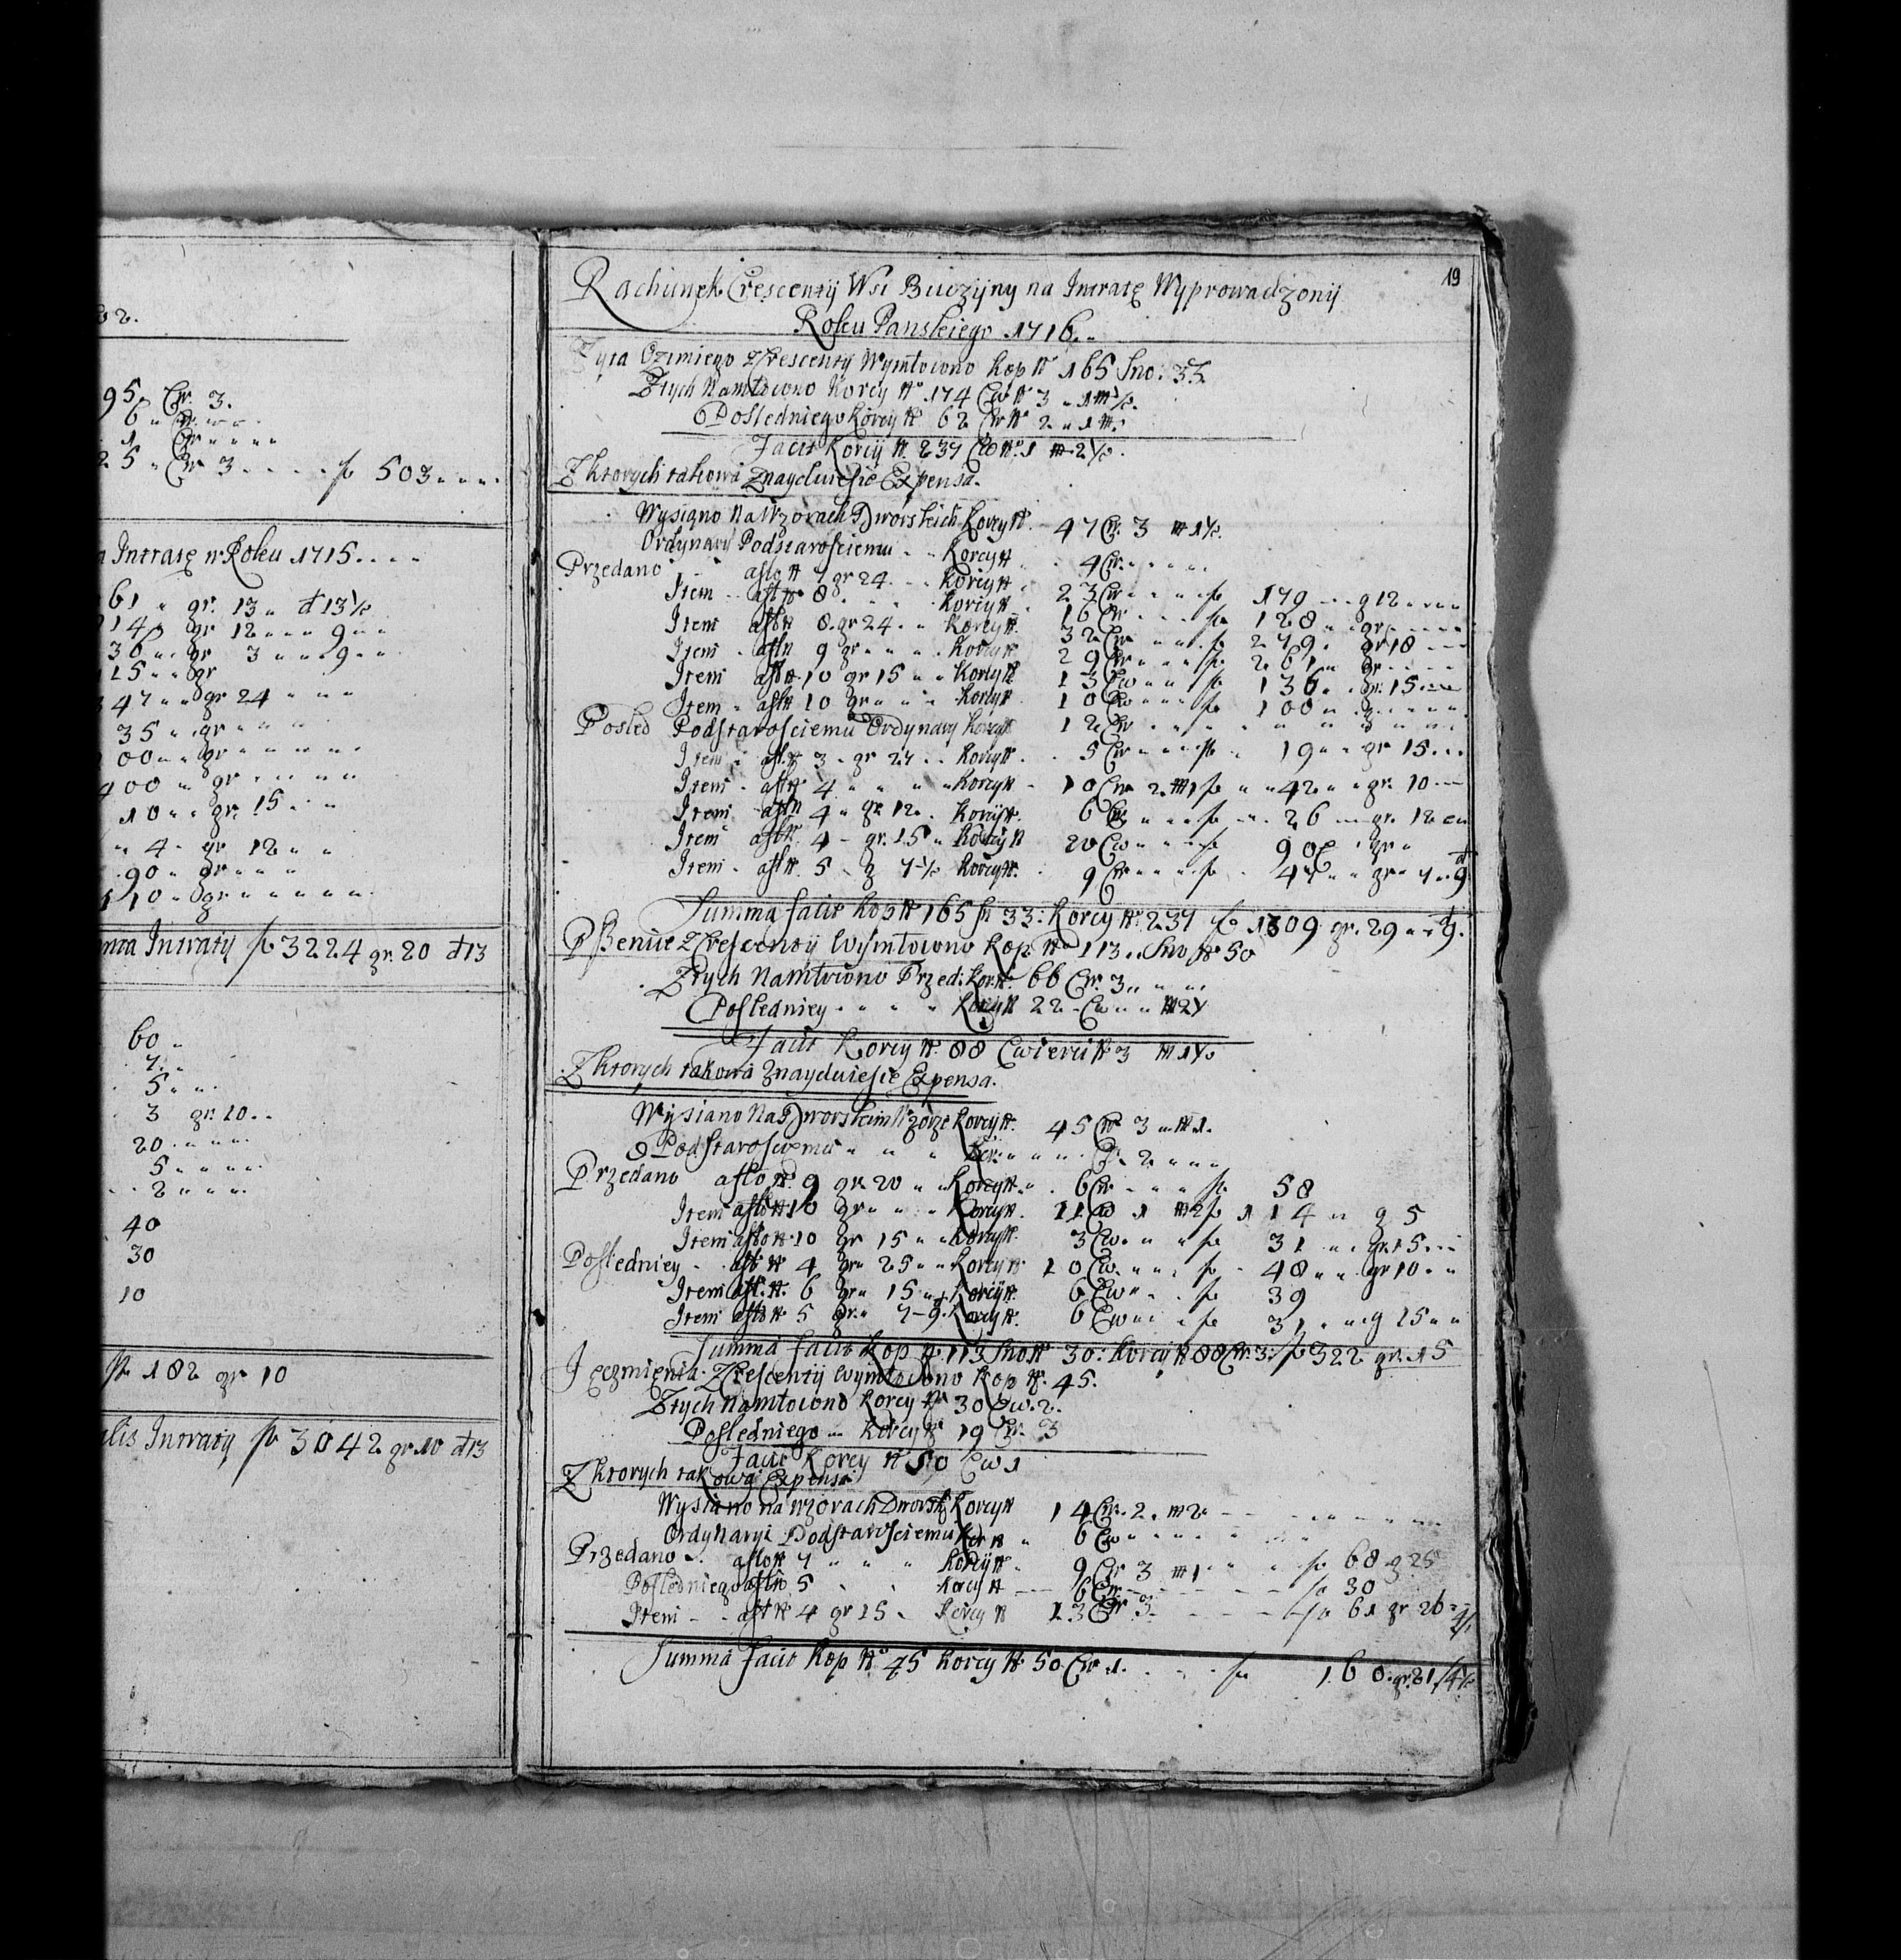 95 Cw. 3.
6 „ Cw. „ „ „
1 Cw „ „ „ „
25 „ Cw 3 . . . . fl 503 „ „ „
Intratę w Roku 1715 . . . .
61 „ gr. 13 „ d 13½
14 „ gr 12 „ „ „ 9 „ „
36 „ „ gr 3 „ „ „ 9 „ „
15 „ „ gr
47 „ „ gr 24 „ „ „
35 „ „ gr „ „ „
00 „ „ gr „ „ „ „
400 „ gr „ „ „ „
10 „ „ gr. 15 „ „
„ 4 „ gr 12 „ „
90 „ gr „ „ „
10 „ gr „ „ „ „ „
Intraty fl 3224 gr. 20 d 13
60 „
7 „
5 „ „
3 gr. 10 . .
20 . „ „ „
5 „ „ „ „
2 „ „ „
40
30
10
fl 182 gr 10
alis Intraty fl 3042 gr 10 d 13
19
Rachunek Crescentij Wsi Budzijny na Intratę Wyprowadzonij
Roku Panskiego 1716 . .
Zyta Ozimiego z Crescentij Wymłocono Kop N 165 Sno: 33.
Ztych Namłocono Korcy No 174 Cw N 3 „ 1 m ½.
Posledniego Korcy N 62 Cw N 2 „ 1 m.
Facit Korcij N. 237 Cw No. 1 m 2½.
Z ktorych takowa Znayduiesie Expensa.
Wysiano Na Wzorach Dworskich Korcy N. 47 Cw. 3 m 1½.
Ordynarij Podstarosciemu . „ Korcy N 4 Cw. „ „ „ „
Przedano a flo N 7 gr 24 . . Korcy N 23 Cw „ „ „ fl 179 „ „ g 12 „ „ „
Item a flo N 8 . . . Korcy N 16 Cw . . . fl 128 „ „ gr „ „ „
Item a flo N 8 . gr 24 . „ Korcy N. 32 Cw „ „ fl 279 „ gr 18 „ „
Item . a fl N 9 gr „ „ „ Korcy N 29 Cw „ „ fl 261 „ gr „ „ „
Item a flo 10 gr 15 „ „ Korcy N 13 Cw „ „ fl 136 „ „ gr. 15 „ „
Item „ a fl N 10 gr „ „ „ Korcy N 10 Cw „ „ fl 100 „ „ g „ „ „
Posled Podstarosciemu Ordynarij Korcy N 12 Cw „ „ „ „ „ „ „
Item „ a fl N 3 „ gr 27 . . Korcy N . 5 Cw „ „ „ fl „ 19 „ „ gr 15 . . .
Item „ a fl N 4 „ „ „ „ Korcy N . 10 Cw 2 m 1 fl „ „ 42 „ „ gr. 10 „ „
Item „ a fl N 4 „ gr 12 „ . Korcy N. 6 Cw „ „ „ fl „ „ 26 „ „ gr. 12 „ „
Item a fl N. 4 „ gr. 15 „ Korcy N 20 Cw „ „ „ fl 90 „ gr „
Item „ a fl N. 5 „ g 7½ Korcy N. 9 Cw „ „ „ fl . 47 „ „ gr „ 7 „ d 9
Summa facit Kop N 165 Sn 33: Korcy N. 237 fl 1309 gr. 29 „ „ d 9.
Pszenice z Crescentij Wymłocono Kop. No 113 „ Sno N 50
Ztych Namłocono Przed: Kor N. 66 Cw. 3 „ „ „ „
Posledniey „ „ „ „ Korcy N 22 „ Cw „ „ m 2½
Facit Korcy N. 88 Cwierci N 3 m 1½
Z ktorych takowa Znayduiesie Expensa.
Wysiano Na Dworskim Wzorze Korcy N. 45 Cw 3 „ m 1.
O Podstarosciemu „ „ „ Kor „ „ „ Cw 2 „ „ „
Przedano a flo N. 9 gr 20 „ „ Korcy N „ . 6 Cw „ „ „ fl 58
Item a flo N 10 gr „ „ „ Korcy N . 11 Cw 1 m 2 fl 114 „ g 5
Item a flo N 10 gr 15 „ „ Korcy N. 3 Cw „ „ „ fl 31 „ „ gr 15 . . .
Posledniey „ . a fl N 4 gr „ 25 „ „ Korcy N 10 Cw „ „ „ fl „ 48 „ „ gr 10 . „
Item a fl. N. 6 gr „ 15 „ „ Korcy N. 6 Cw „ „ . fl 39
Item a flo N 5 gr „ 7–9. Korcy N. 6 Cw „ „ „ fl 31 „ „ g 15 „ „
Summa facit Kop N 113 Sno N 30: Korcy N 88 Cw. 3: fl 322 gr. 15
Jęczmienia z Crescentij wymłocono Kop N. 45.
Ztych Namłocono Korcy N 30 Cw. 2.
Posledniego „ Korcy N 19 Cw. 3
Facit Korcy N 50 Cw 1
Z ktorych takowa Expensa
Wysiano na wzorach Dworsk Korcy N 14 Cw. 2. m 2
Ordynaryi Podstarosciemu Kor N „ 6 Cw „ „ „ „
Przedano „ . a flo N 7 „ „ „ Korcy N . 9 Cw 3 m 1 „ „ „ fl 68 g 25
Posledniego a flo 5 . . Korcy N 6 Cw fl 30
Item – . a fl N 4 gr 15 „ Korcy N 13 Cw 3 fl 61 gr 26
Summa facit Kop No 45 Korcy N 50 Cw 1. . . . fl 160 . gr. 21 / 4½